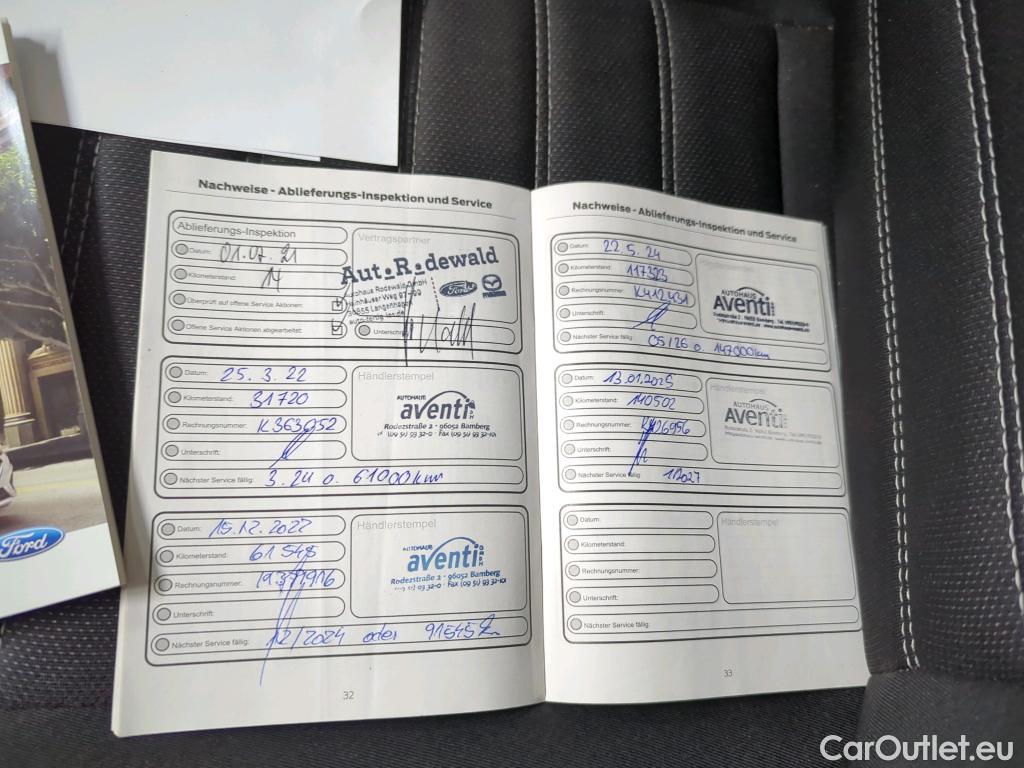 Nachweise - Ablieferungs-Inspektion und Service
Ablieferungs-Inspektion
Datum: 01.07.21
Kilometerstand: 14
Überprüft auf offene Service Aktionen:
Offene Service Aktionen abgearbeitet:
Vertragspartner
Aut.R.dewald
Autohaus Rodewald GmbH
Langenhagen
Ford
mazda
Unterschrift
Datum: 25.3.22
Kilometerstand: 31720
Rechnungsnummer: K363052
Unterschrift:
Nächster Service fällig: 3.24 o. 61000km
Händlerstempel
AUTOHAUS
aventi GmbH
Rodezstraße 2 · 96052 Bamberg
(09 51) 93 32-0 · Fax (09 51) 93 32-101
Datum: 15.12.2022
Kilometerstand: 61548
Rechnungsnummer:
Unterschrift:
Nächster Service fällig: 12/2024 oder 91545
Händlerstempel
AUTOHAUS
aventi GmbH
Rodezstraße 2 · 96052 Bamberg
Fax (09 51) 93 32-101
32
Nachweise - Ablieferungs-Inspektion und Service
Datum: 22.5.24
Kilometerstand: 117323
Rechnungsnummer: K412431
Unterschrift:
Nächster Service fällig: 05/26 o 147000km
Händlerstempel
AUTOHAUS
Aventi
Datum: 13.01.2025
Kilometerstand: 140502
Rechnungsnummer:
Unterschrift:
Nächster Service fällig: 1/2027
Händlerstempel
AUTOHAUS
Aventi
Datum:
Kilometerstand:
Rechnungsnummer:
Unterschrift:
Nächster Service fällig:
Händlerstempel
33
Ford
CarOutlet.eu